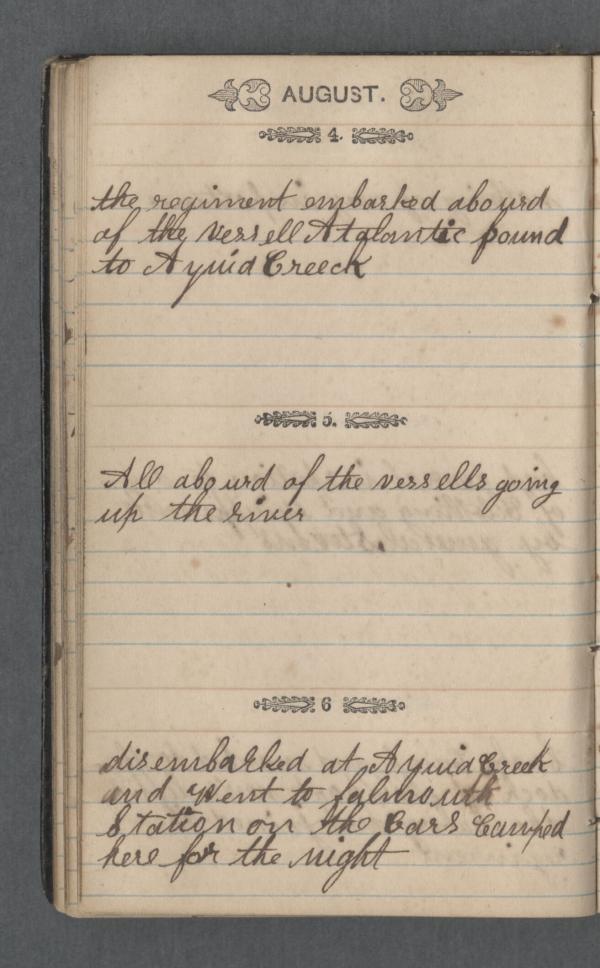 AUGUST.
4.
the regiment embarked abourd
of the verssell Atalantic bound
to Aquid Creeck
5.
All abourd of the verssells going
up the river
6
disembarked at Aquid Creek
and Went to falmouth
Station on the Cars Camped
here for the night